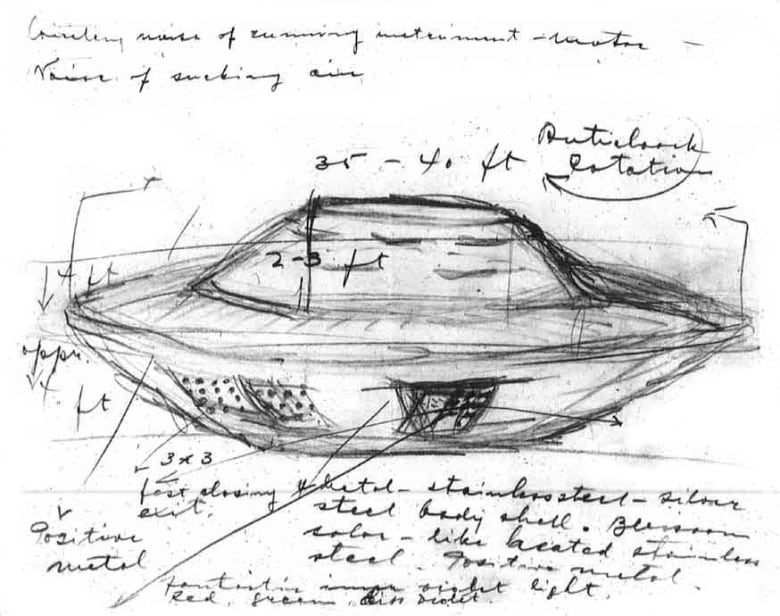 noise of running instrument - motor -
Noise of sucking air
Anticlock
35 - 40 ft
rotation
2-3 ft
4 ft
appr.
4 ft
3 x 3
fast closing
exit.
Metal - stainless steel - silver
steel body shell.
color - like heated stainless
steel. Positive metal.
Positive
metal
fantastic violet light.
Red, green, violet.